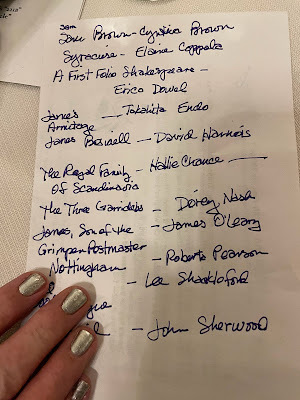 Sam
Brown - Cynthia Brown
Syracuse - Elaine Coppola
A First Folio Shakespeare -
Erico Dowel
James - Takahita Endo
Armitage
James Boswell - David Harnois
The Royal Family - Hallie Chance
of Scandinavia
The Three Garridebs - Dérey Nash
Jones, Son of the - James O'Leary
Grimpen Postmaster
Nottingham - Roberta Pearson
- Lee Shackleford
- John Sherwood